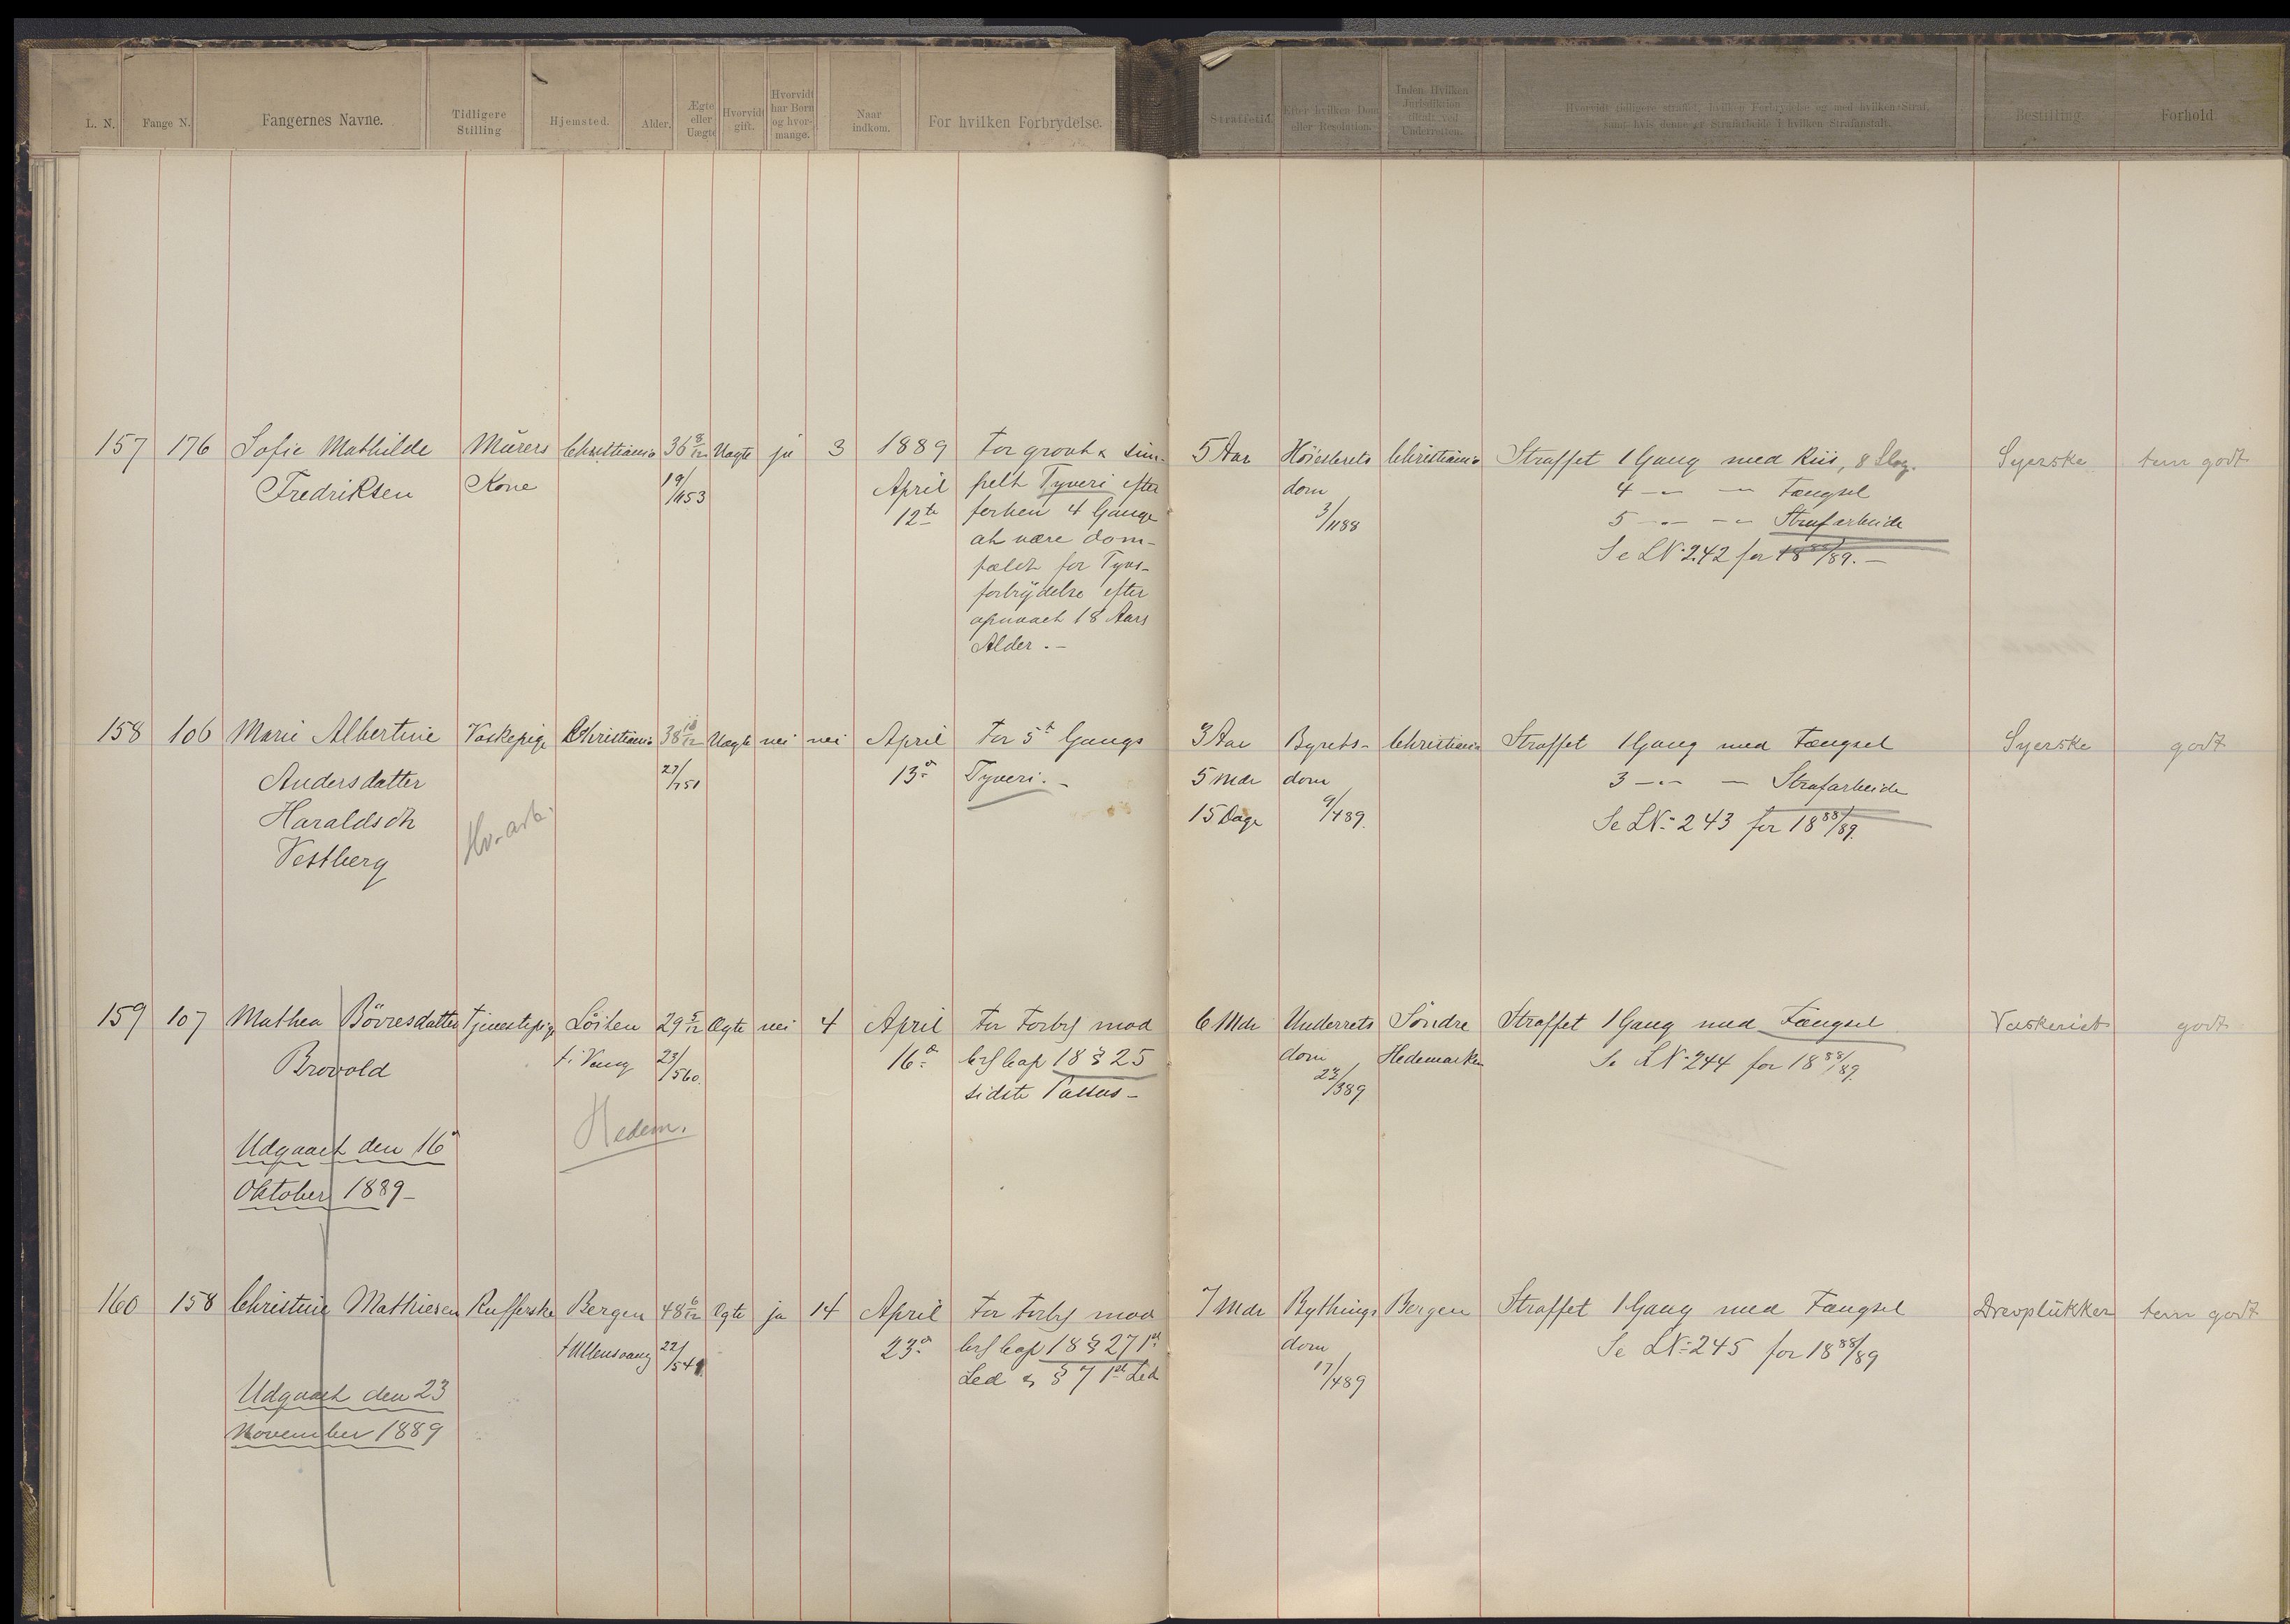 L. N.
Fange N.
Fangernes Navne.
Tidligere
Stilling
Hjemsted.
Alder.
Ægte
eller
Uægte
Hvorvidt
gift.
Hvorvidt
har Børn
og hvor-
mange.
Naar
indkom.
For hvilken Forbrydelse.
Straffetid.
Efter hvilken Dom
eller Resolution.
Inden Hvilken
Jurisdiktion
tiltalt ved
Underretten.
Hvorvidt tidligere straffet, hvilken Forbrydelse og med hvilken Straf,
samt hvis denne er Strafarbeide i hvilken Strafanstalt.
Bestilling
Forhold
157 176 Sofie Mathilde
Fredriksen
Murers
Kone
Christiania
36 8/12
19/1153
Uægte ja 3
1889
April
12te
For grovt & sim-
pelt Tyveri efter
forhen 4 Gange
at være dom-
fældt for Tyvs-
forbrydelse efter
opnaaet 18 Aars
Alder.-
5 Aar
Høiesterets
dom
3/1188
Christiania
Straffet 1 Gang med Riis, 8 Slag.
4 -"- -"- Fængsel
5 -"- -"- Strafarbeide
Se LN: 242 for 1888/89.-
Syerske
tem godt
158 106 Marie Albertine
Andersdatter
Haraldsdt
Vestberg
Vaskepige
Hv-arb.
Christiania
38 10/12
Uægte nei nei
April
13de
For 5te Gangs
Tyveri.-
3 Aar
5 Mdr
15 Dage
Byrets-
dom
9/489.
Christiania
Straffet 1 Gang med Fængsel
3 -"- -"- Strafarbeide
Se LN: 243 for 1888/89.
Syerske
godt
159 107 Mathea Børresdatter
Brovold
Udgaaet den 16de
Oktober 1889-
Tjenestepige
Løiten
f. i Vang
Hedem.
29 5/12
23/560.
Ægte nei 4
April
16de
For Forbr mod
Crl Cap 18 § 25
sidste Passus-
6 Mdr
Underrets
dom
23/389
Søndre
Hedemarken
Straffet 1 Gang med Fængsel
Se LN: 244 for 1888/89.
Vaskerist
godt
160 158 Christine Mathiesen
Udgaaet den 23
November 1889
Bergen
f Ullensvang
48 6/12
Ægte ja 14
April
23de
For Forbr mod
Crl Cap 18 § 27 1ste
Led & § 7 1ste Led
7 Mdr
Bythings
dom
17/489
Bergen
Straffet 1 Gang med Fængsel
Se LN: 245 for 1888/89
Drevplukker
tem godt